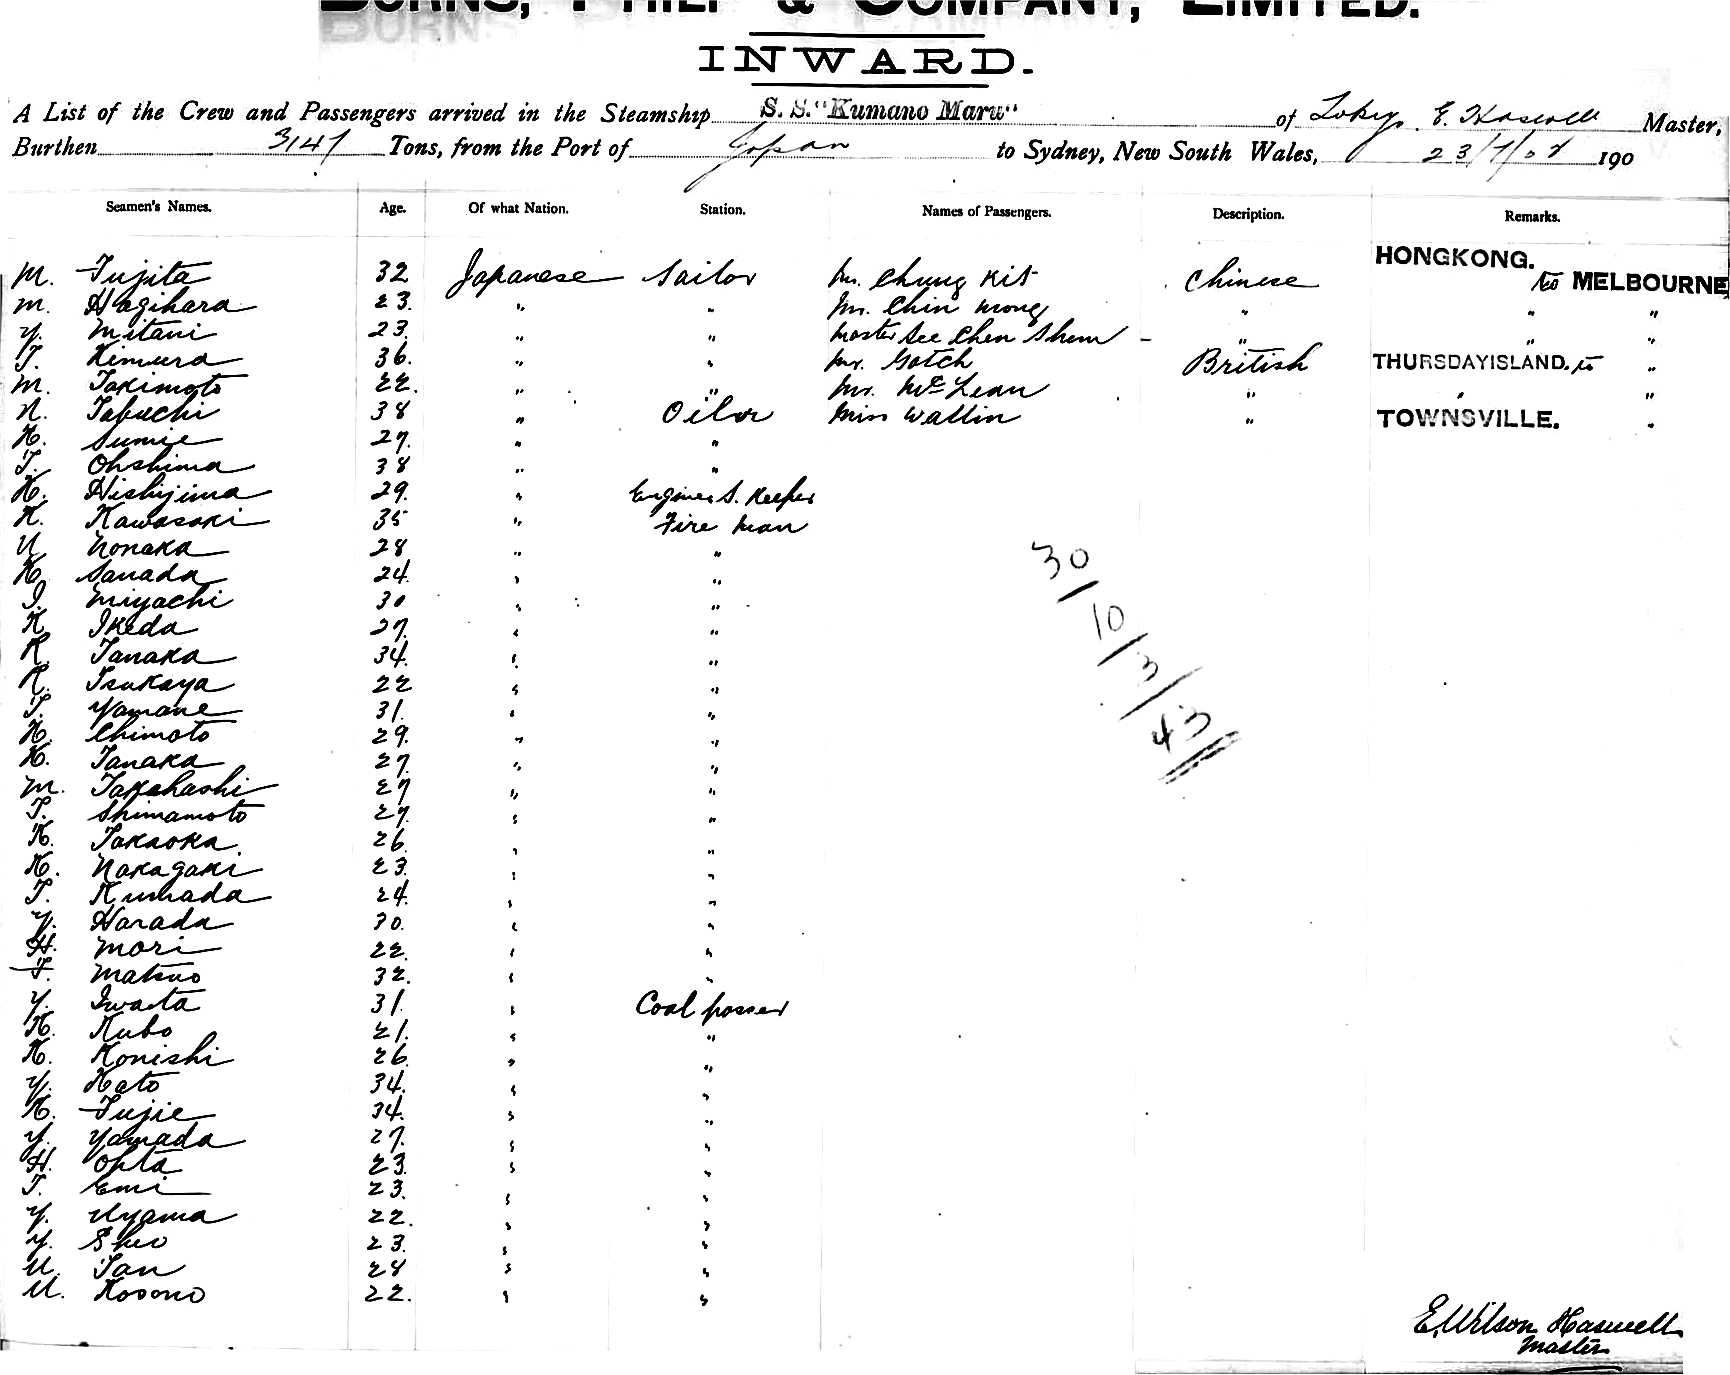 BURNS, PHILP & COMPANY, LIMITED.
INWARD.
A List of the Crew and Passengers arrived in the Steamship S. S. "Kumano Maru" of Tokyo. E. Haswell Master,
Burthen 3147 Tons, from the Port of Japan to Sydney, New South Wales, 23/7/08 190
Seamen's Names. Age. Of what Nation. Station. Names of Passengers. Description. Remarks.
M. Fujita 32 Japanese Sailor Mr. Chung Kit Chinese HONGKONG. to MELBOURNE
M. Hagihara 23. " " Mr. Chin Mong " " "
Y. Mitani 23. " " Master See Chen Shum - " " "
T. Kimura 36. " " Mr. Gotch British THURSDAY ISLAND. to "
M. Takimoto 22. " " Mr. McLean " " "
N. Tabuchi 38 " Oiler Miss Wallin " TOWNSVILLE. "
K. Sumie 27. " "
T. Ohshima 38 " "
K. Hishijima 29. " Engines S. Keeper
K. Kawasaki 35 " Fire man
U. Nonaka 28 " "
K. Sanada 24. " "
I. Miyachi 30 " "
K. Ikeda 27. " "
K. Tanaka 34. " "
K. Tsukaya 22 " "
T. Yamane 31. " "
K. Chimoto 29. " "
K. Tanaka 27 " "
M. Takahashi 27 " "
T. Shimamoto 27. " "
K. Takaoka. 26. " "
K. Nakagaki 23. " "
T. Kumada 24. " "
Y. Harada 30. " "
H. Mori 22. " "
T. Matsuo 32. " "
Y. Iwata 31. " Coal passer
K. Kubo 21. " "
K. Konishi 26. " "
Y. Kato 34. " "
K. Fujie 34. " "
Y. Yamada 27. " "
H. Ohta 23. " "
T. Emi 23. " "
Y. Uyama 22. " "
Y. Sho 23. " "
U. Tan 28 " "
U. Kosono 22. " "
30/10/3/43
E. Wilson Haswell
Master